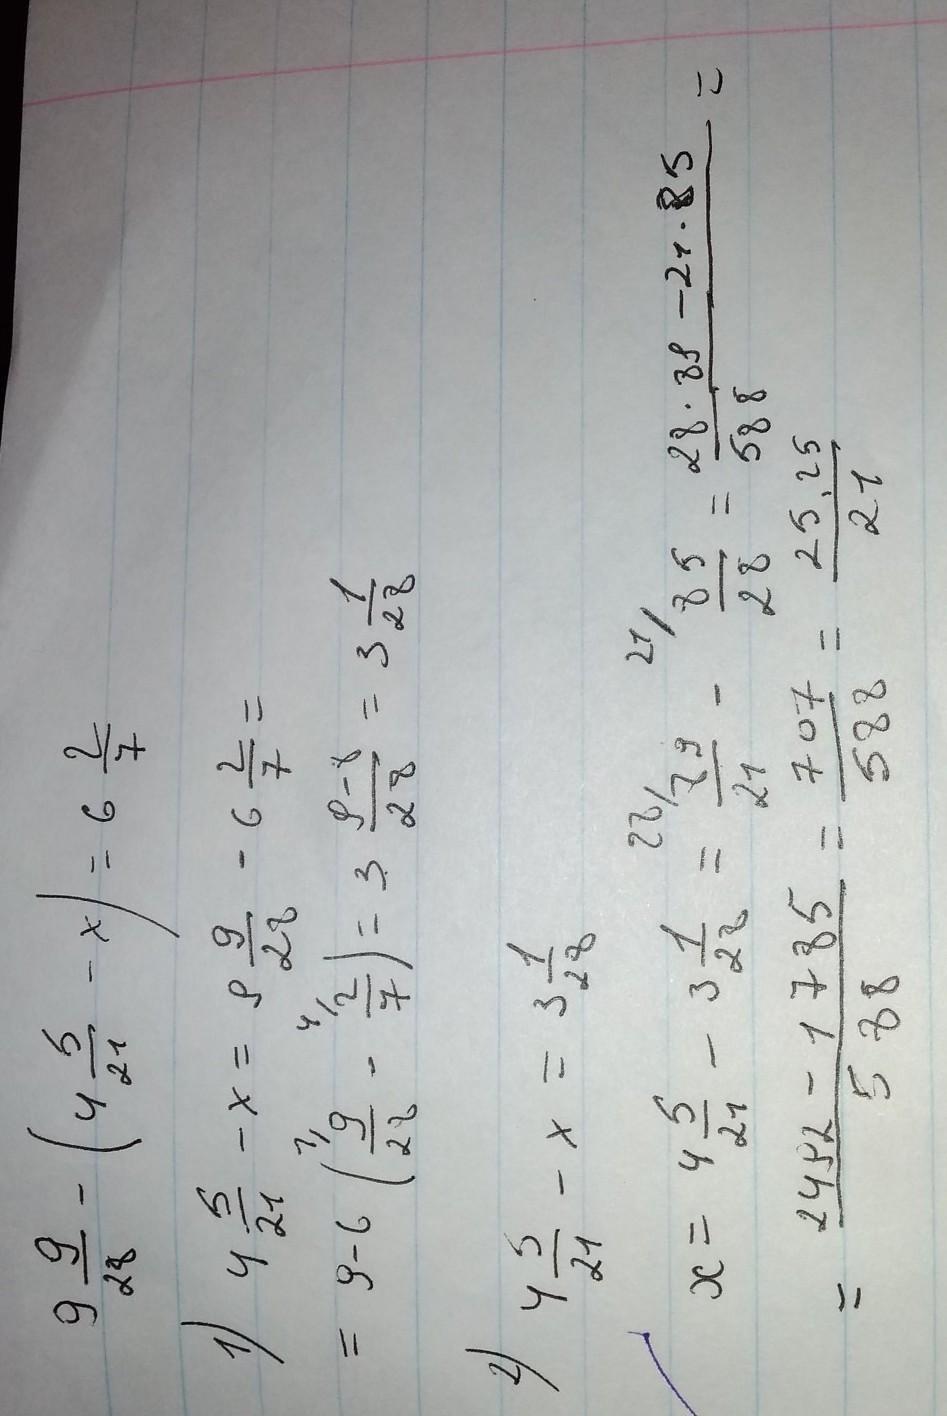 9 9/28 - (4 5/21 - x) = 6 2/7
1) 4 5/21 - x = 9 9/28 - 6 2/7 =
= 9-6 (1/ 9/28 - 4/ 2/7) = 3 9-8/28 = 3 1/28
2) 4 5/21 - x = 3 1/28
x = 4 5/21 - 3 1/28 = 28/ 89/21 - 21/ 85/28 = 28·89-21·85/588 =
= 2492-1785/588 = 707/588 = 25,25/21